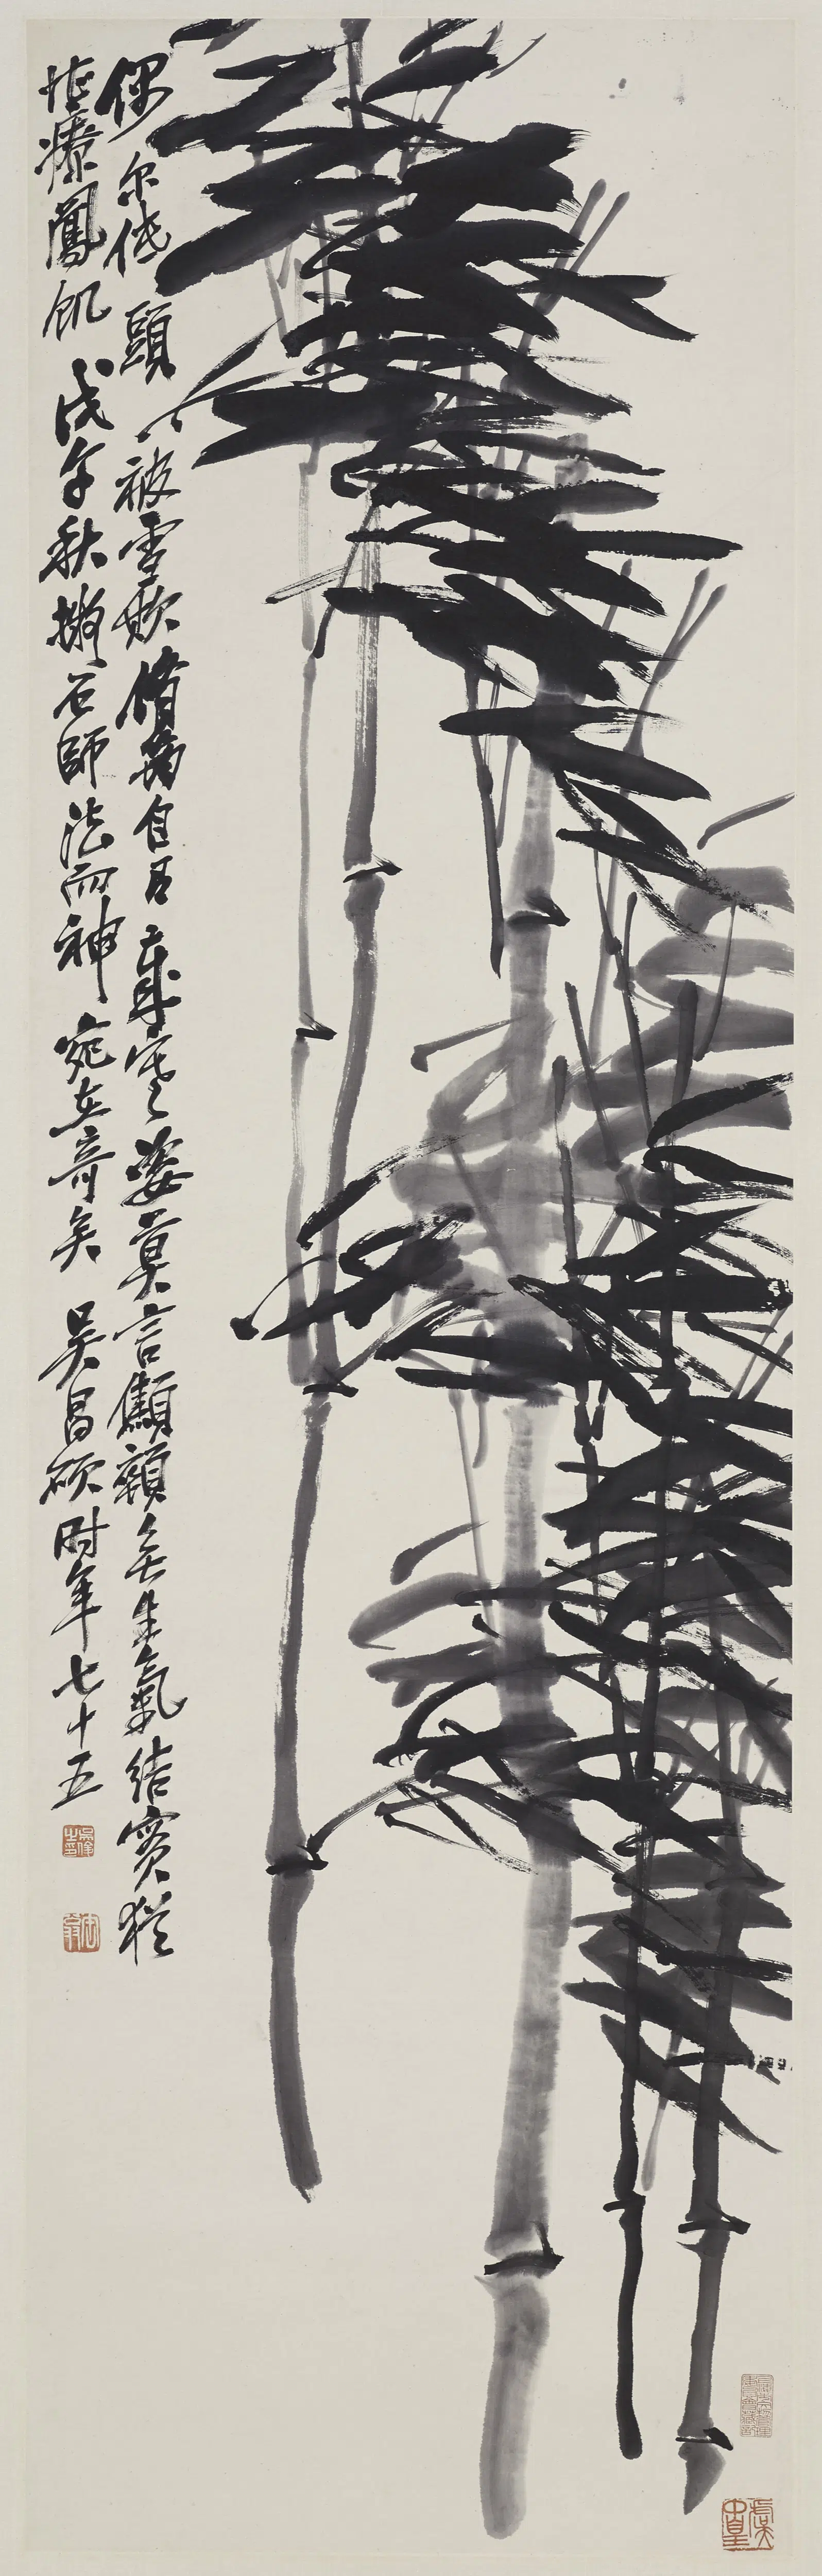 偶尔低頭被雪欺脩篁自有歲寒姿莫言顦顇無生氣結實猶
堪療鳳飢戊午秋擬石師法而神宛在奇矣吳昌碩时年七十五